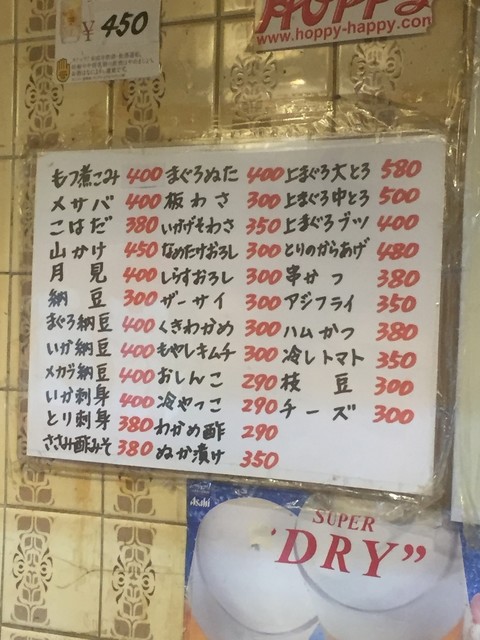 ¥450
HOPPY
www.hoppy-happy.com
もつ煮こみ 400
メサバ 400
こはだ 380
山かけ 450
月見 400
納豆 300
まぐろ納豆 400
いか納豆 400
メカブ納豆 400
いか刺身 400
とり刺身 380
ささみ酢みそ 380
まぐろぬた 400
板わさ 300
いかげそわさ 350
なめたけおろし 300
しらすおろし 300
ザーサイ 300
くきわかめ 300
もやしキムチ 300
おしんこ 290
冷やっこ 290
わかめ酢 290
ぬか漬け 350
上まぐろ大とろ 580
上まぐろ中とろ 500
上まぐろブツ 400
とりのからあげ 480
串かつ 380
アジフライ 350
ハムかつ 380
冷しトマト 350
枝豆 300
チーズ 300
Asahi
SUPER
"DRY"